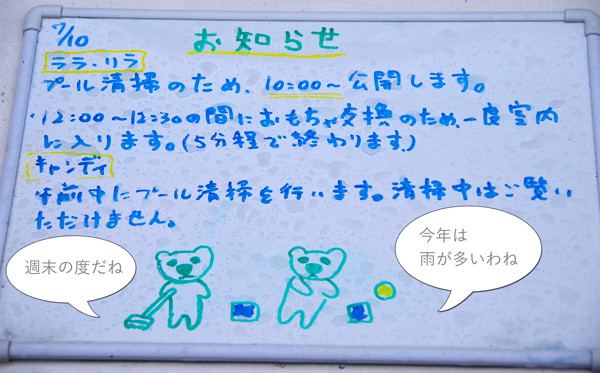 7/10
お知らせ
ララ・リラ
プール清掃のため、10:00～公開します。
・12:00～12:30の間におもちゃ交換のため、一度室内
に入ります。(5分程で終わります)
キャンディ
午前中にプール清掃を行います。清掃中はご覧い
ただけません。
週末の度だね
今年は
雨が多いわね